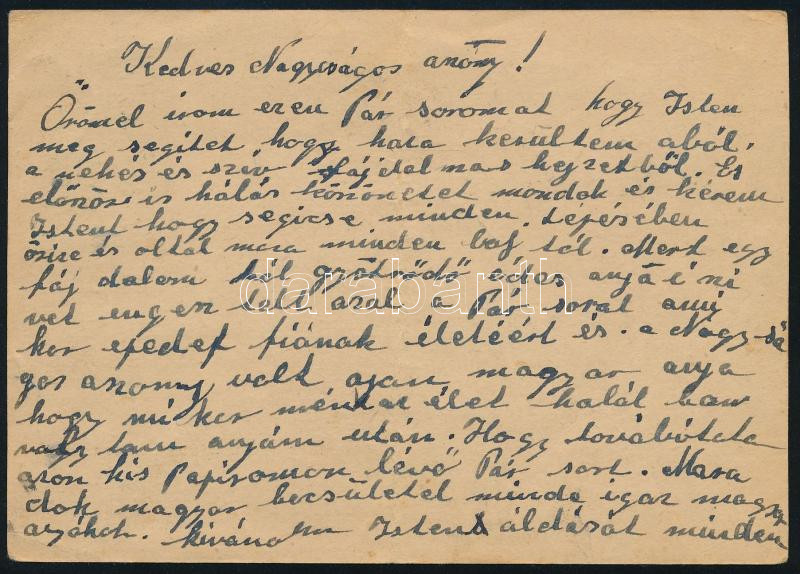 Kedves Nagyságos aszony!
Örömel irom ezen Pár soromat hogy Isten
meg segitet hogy haza kerültem aból.
a nehés és sziv fájdalmas hejzetböl. És
elöször is hálás köszönetet mondok és kérem
Istent hogy segicse minden. lepésében
örize és oltalmaza minden baj tól. Mert egy
fáj dalom tól gyötrödö édes anyá i szi
vet engesztelt azal a Pár soral ami
kor epedet fiának életéért és. a Nagy-sá
gos aszony volt azan magyar anya
hogy mi kor mentaz élet halál ban
volt tam anyám után. Hogy továbbótata
azon kis Papiromon lévö Pár sort. Mara
dok magyar becsületel minde igaz magyar
anyáknak. kivánom Isten áldását minden
darabanth